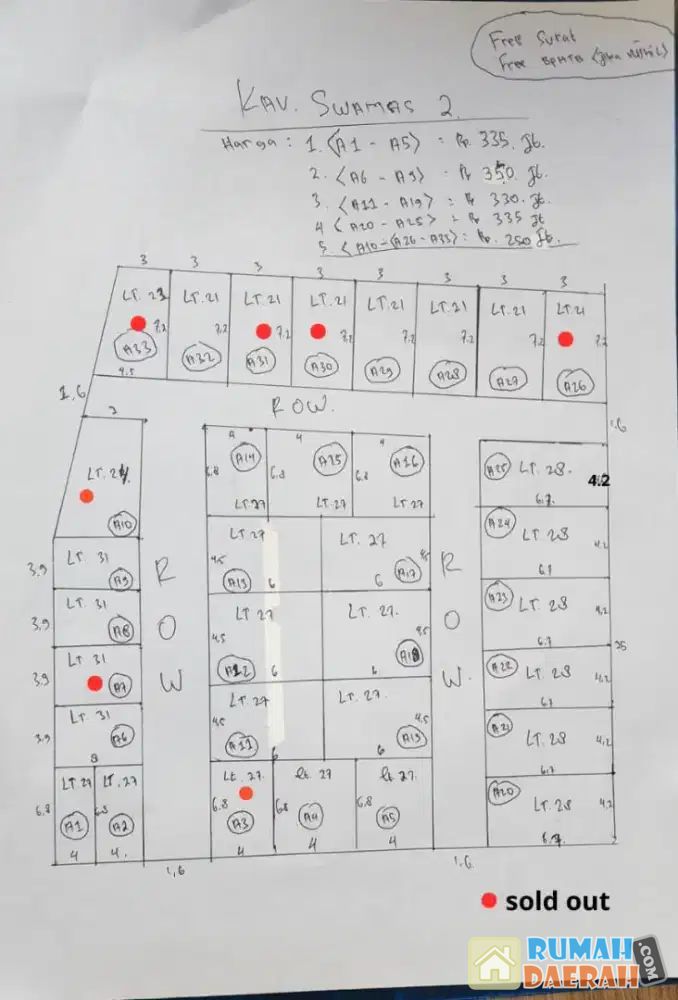 Free Surat
Free BPHTB (Jika
KAV. SWAMAS 2.
Harga : 1. <A1 - A5> = Rp. 335. Jt.
2. <A6 - A9> = Rp 350. Jt.
3. <A11 - A19> = Rp 330. Jt.
4 <A20 - A25> = Rp 335 Jt
5 <A10 - (A26 - A33) = Rp. 250 Jt.
3 3 3 3 3 3 3 3
LT. 23 LT. 21 LT. 21 LT. 21 LT. 21 LT. 21 LT. 21 LT. 21
7.2 7.2 7.2 7.2 7.2 7.2 7.2 7.2
A33 A32 A31 A30 A29 A28 A27 A26
4.5
1,6
ROW.
1.6
2
4 4 4
A14 A15 A16
6.8 6.8 6.8
LT. 27 LT. 27 LT 27
A25 LT. 28.
4.2
6.7
LT. 24
A10
LT. 27 LT. 27
4.5 4.5
A13 6 6 A17
A24 LT. 28
4.2
6.7
3,9 LT. 31
A9
R
R
3,9 LT. 31
A8
O
O
LT 27 LT. 27.
4.5 4.5
A12 6 6 A18
A23 LT. 28
4.2
6.7
25
3.9 LT 31
A7
W
W.
A22 LT. 28
4.2
6.7
LT. 27 LT. 27.
4.5 4.5
A11 6 6 A19
3,9 LT. 31
A6
8
A21 LT. 28
4.2
6.7
LT 27 LT. 27
6.8 6.8
A1 A2
4 4.
Lt. 27. Lt. 27 Lt 27.
6.8 6.8 6.8
A3 A4 A5
4 4 4
A20 LT. 28
4.2
6.7
1,6
1,6
sold out
RUMAH
DAERAH
.COM